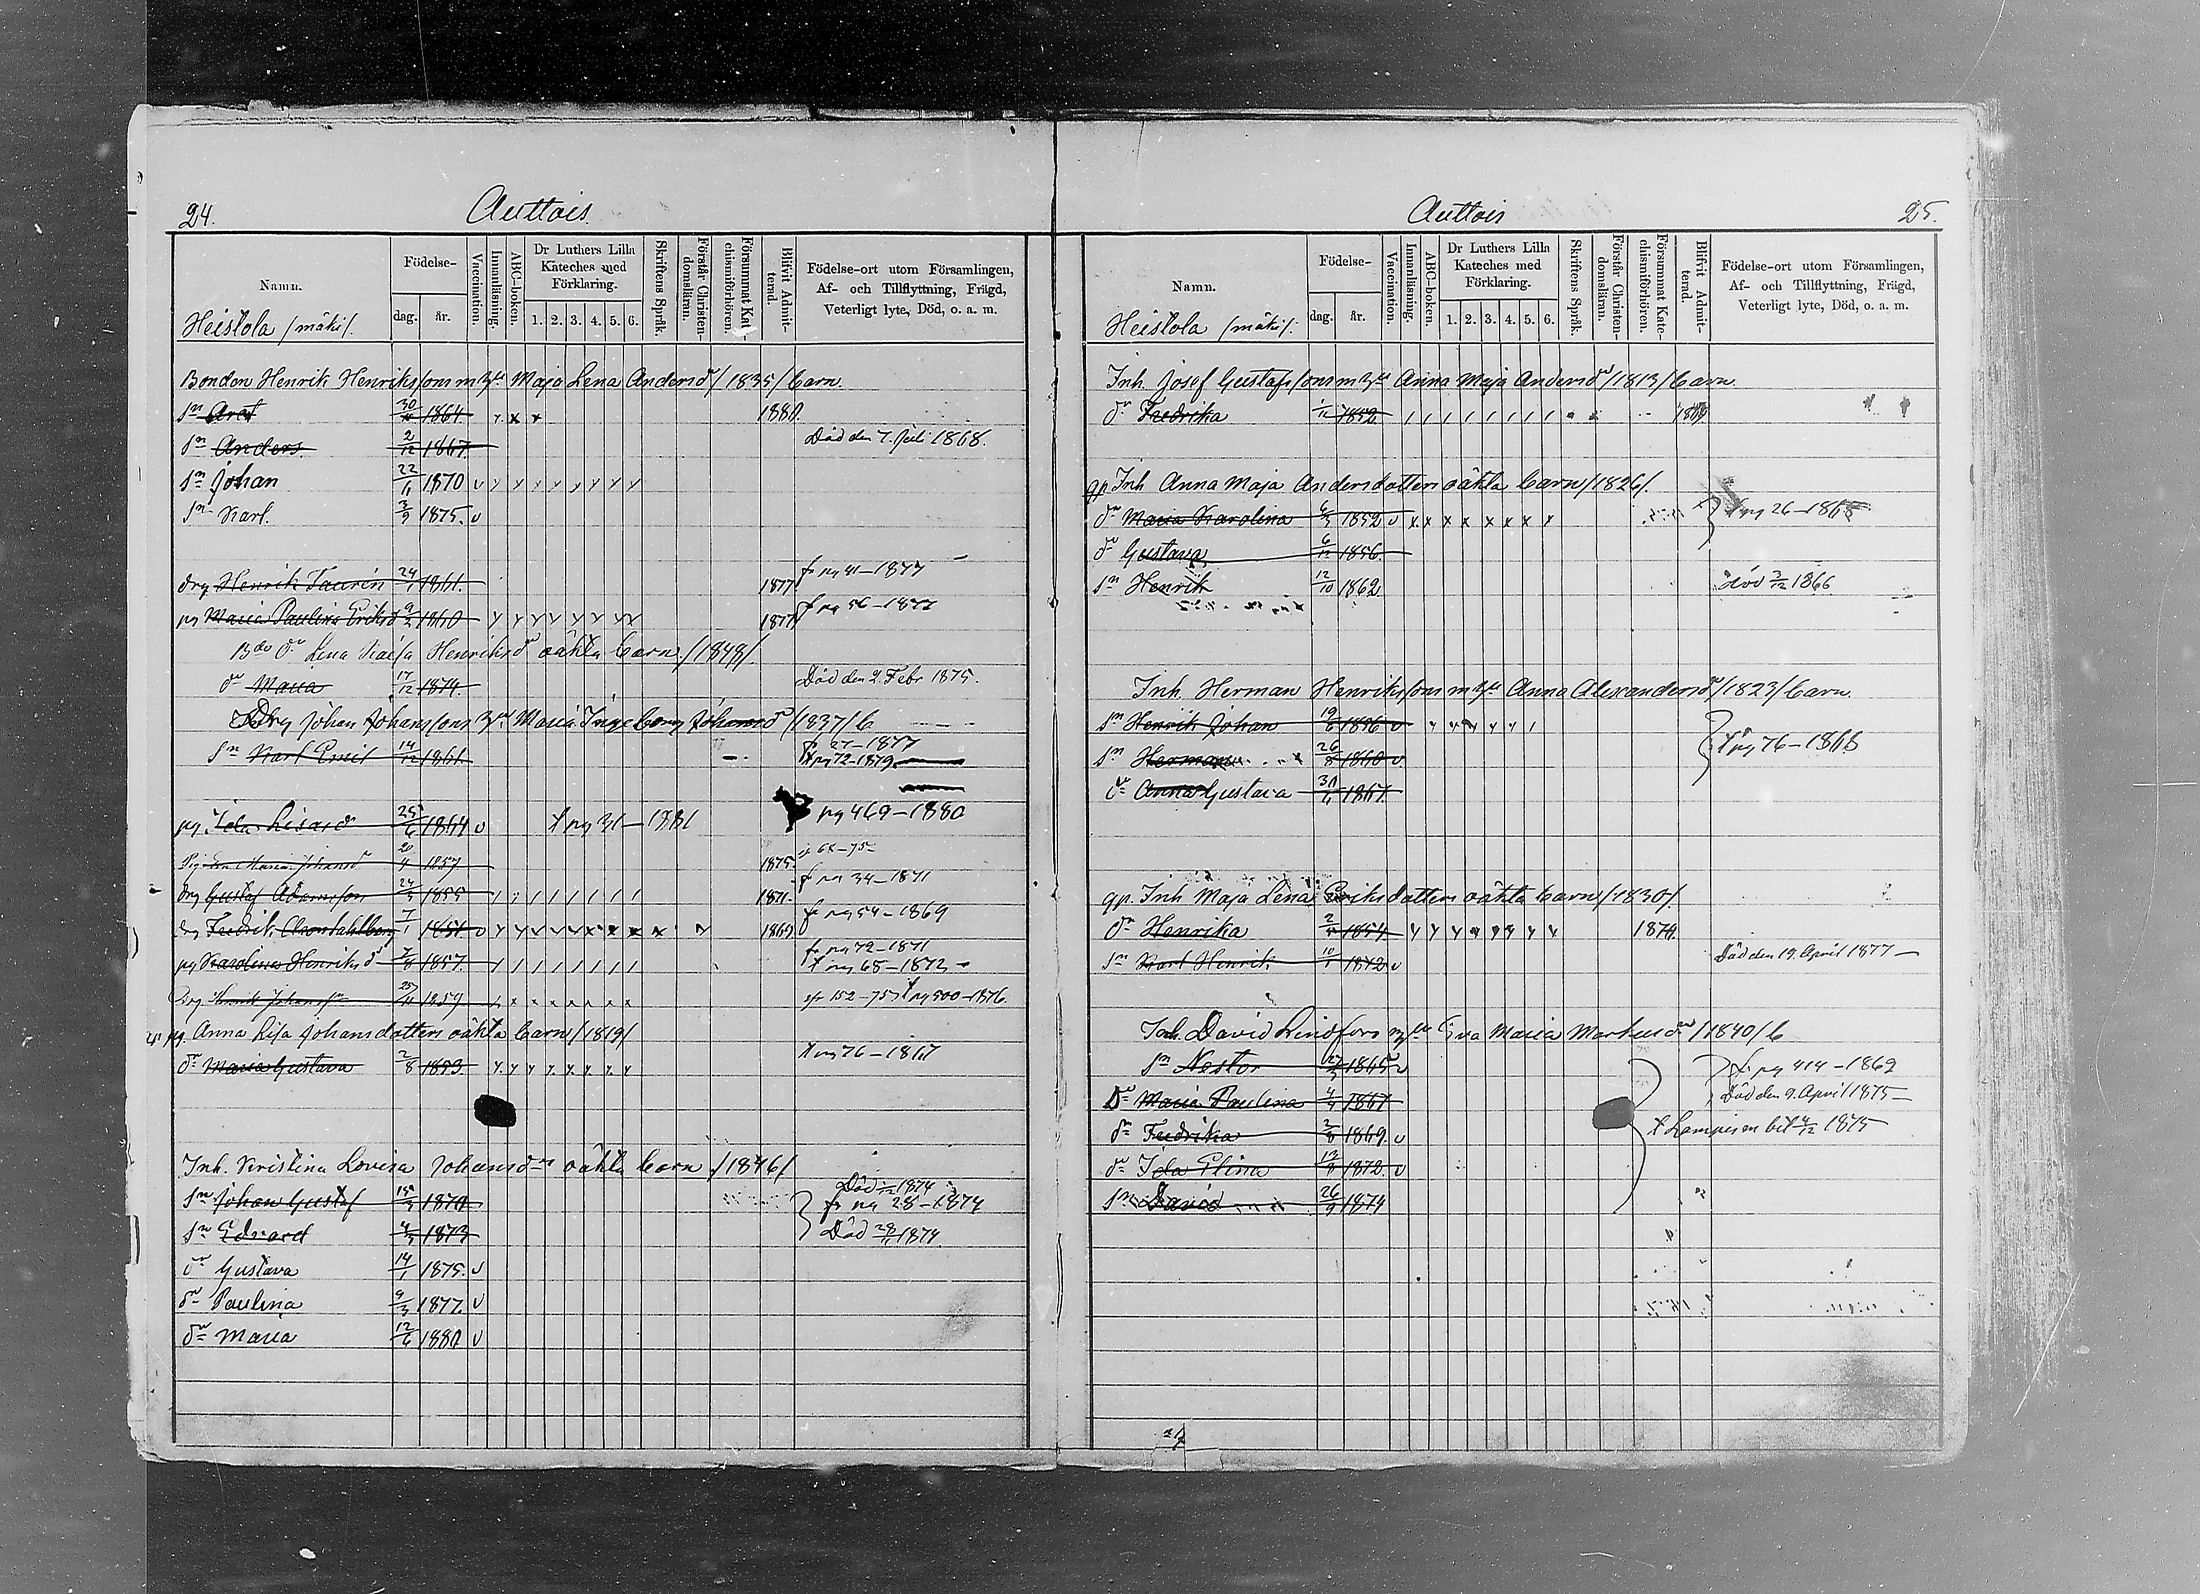 24.
Auttois.
Namn.
Födelse-
dag.
år.
Vaccination.
Innanläsning.
ABC-boken.
Dr Luthers Lilla
Kateches med
Förklaring.
1. 2. 3. 4. 5. 6.
Skriftens Språk.
Förstår Christen-
domsläran.
Försummat Kat-
chismiförhören.
Blifvit Admit-
terad.
Födelse-ort utom Församlingen,
Af- och Tillflyttning, Frägd,
Veterligt lyte, Död, o. a. m.
Heistola /mäki/.
Bonden Henrik Henrikssons m Maja Lena Andersdr /1835/ barn.
sn 30 1864 1880
sn Anders 2/12 1867 Död den 7. Juli 1868.
sn Johan 22/11 1870 v
sn Karl. 3/9 1875. v
drg Henrik Taurén 24 1861. 1877 fr pg 41–1877
pg Maria Paulina Eriksdr 9/2 1860 1877 fr pg 56–1877
Bde dr Lena Kaisa Henriksdr oäkta barn /1849/.
dr Maria 17/12 1874. Död den 2. Febr 1875.
Drg Johan Johanssons Maria Ingeborg Johansdr /1837/ b
sn Karl Emil 14/12 1861 fr 27–1877
pg 72–1879
pg Ida Lisa dr 25/6 1864 v t pg 31–1881 pg 469–1880
Maria Johansd 20/4 1857 1875. 68–75
drg Gustaf Adamsson 24/3 1855 1871. fr pg 34–1871
drg Fredrik 1851 v 1869 fr pg 54–1869
pg Karolina Henriksdr 7/8 1857. fr pg 72–1871
t pg 65–1872
Drg Henrik Johansson 25/11 1859 152–75 t pg 500–1876.
pg. Anna Lisa Johansdotters oäkta barn /1819/
dr Maria Gustava 2/8 1853. t pg 76–1867
Inh. Kristina Lovisa Johansdrs oäkta barn /1846/
sn Johan Gustaf 15/3 1870 Död 1874
fr pg 28–1874
sn Edvard 4/3 1873 Död 28 1874.
dr Gustava 14/1 1875. v
dr Paulina 9/3 1877. v
dr Maria 12/6 1880 v
Auttois
25.
Namn.
Födelse-
dag.
år.
Vaccination.
Innanläsning.
ABC-boken.
Dr Luthers Lilla
Kateches med
Förklaring.
1. 2. 3. 4. 5. 6.
Skriftens Språk.
Förstår Christen-
domsläran.
Försummat Kate-
chismiförhören.
Blifvit Admit-
terad.
Födelse-ort utom Församlingen,
Af- och Tillflyttning, Frägd,
Veterligt lyte, Död, o. a. m.
Heistola /mäki/.
Inh. Josef Gustafssons m Anna Maja Andersdr /1813/ barn.
dr Fredrika 1852.
gp Inh Anna Maja Andersdotters oäkta barn /1826/.
dr Maria Karolina 1852 v pg 26–1868
dr Gustava 6/12 1856.
sn Henrik 12/10 1862 Död 3/12 1866
Inh. Herman Henrikssons m Anna Alexandersdr /1823/ barn.
sn Henrik Johan 19/6 1856 v t pg 76–1868
sn Herman 26/8 1860 v
dr Anna Gustava 1867
gp. Inh Maja Lena Eriksdotters oäkta barn /1830/.
dr Henrika 1854 1874.
sn Karl Henrik 10 1872 v Död den 19. April 1877
Inh. David Lindfors Eva Maria Markusdr /1840/ b
sn Nestor 27/3 1865 v fr pg 414–1869
Dr Maria Paulina 1867 Död den 9. April 1875
dr Fredrika 2/8 1869. v t Lampis m bet 4/12 1875
dr Ida Elina 13/8 1872. v
sn David 26/9 1874